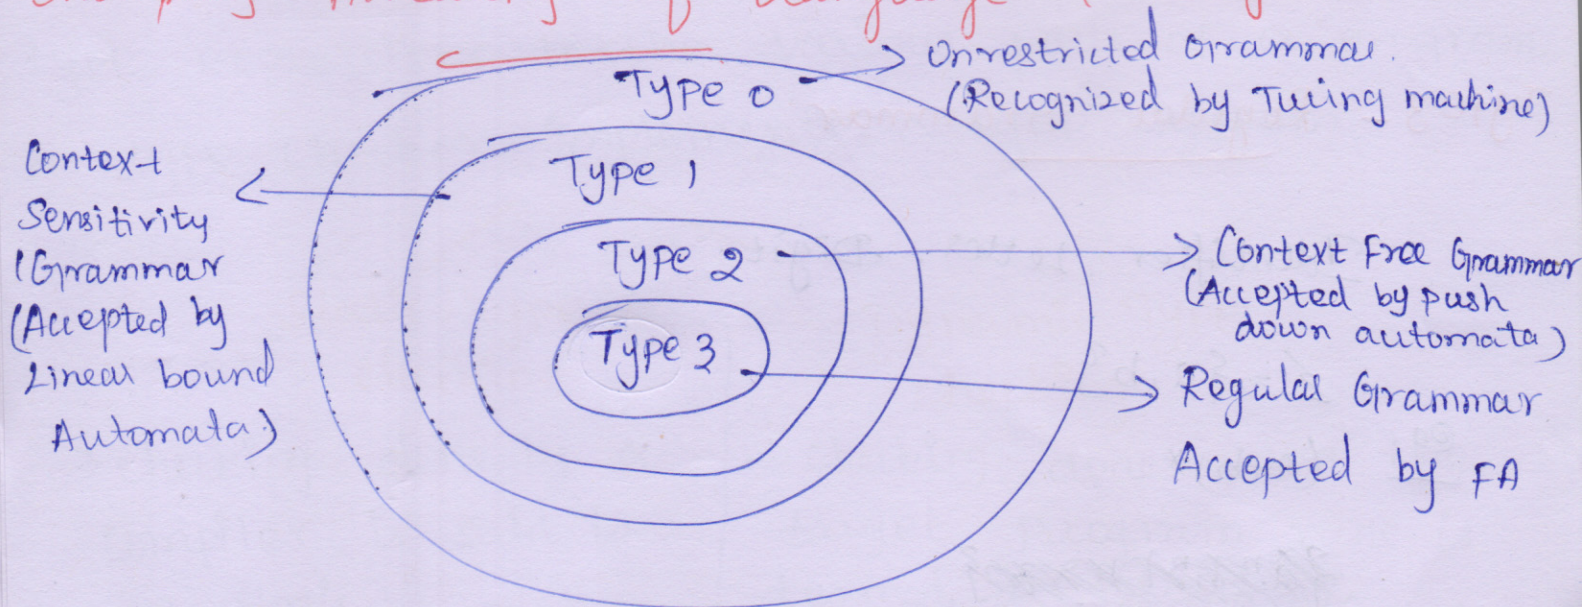 of Language
Type 0
Unrestricted Grammar.
(Recognized by Turing machine)
Type 1
Context
Sensitivity
(Grammar
(Accepted by
Linear bound
Automata)
Type 2
Context Free Grammar
(Accepted by push
down automata)
Type 3
Regular Grammar
Accepted by FA